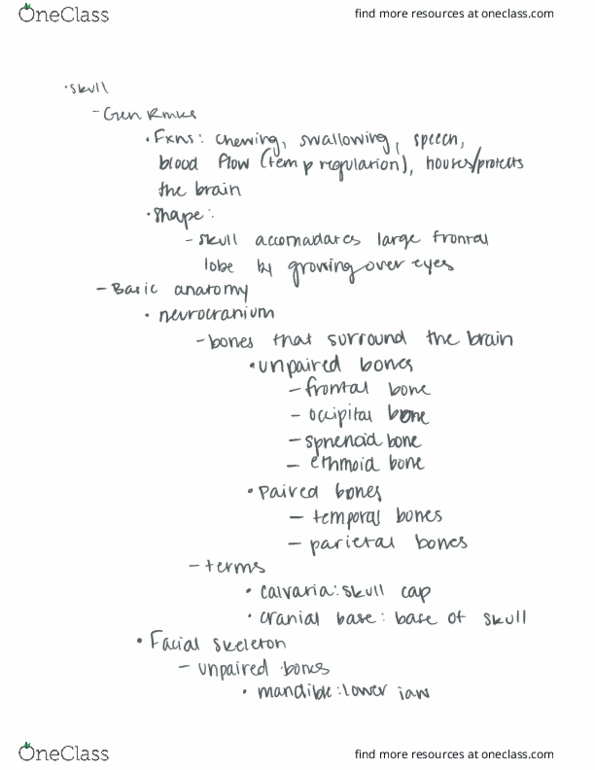 OneClass
find more resources at oneclass.com
·skull
- Gen Rmks
• Fxns: chewing, swallowing, speech,
blood flow (temp regulation), houses/protects
the brain
• Shape:
- skull accomadates large frontal
lobe by growing over eyes
- Basic anatomy
• neurocranium
- bones that surround the brain
• unpaired bones
- frontal bone
- occipital bone
- sphenoid bone
- ethmoid bone
• Paired bones
- temporal bones
- parietal bones
- terms
• calvaria: skull cap
• cranial base: base of skull
• Facial skeleton
- unpaired bones
• mandible: lower jaw
OneClass
find more resources at oneclass.com